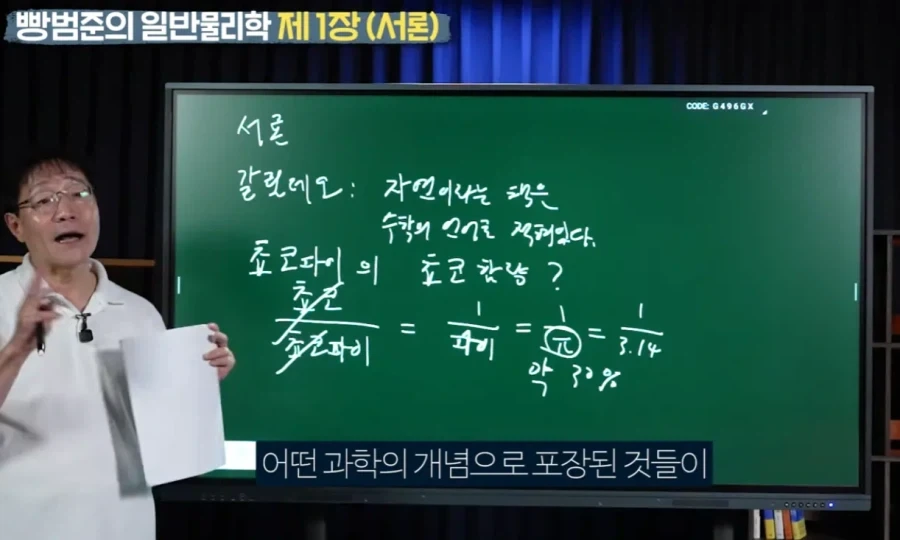 빵범준의 일반물리학 제1장 (서론)
CODE: G496GX
서론
갈릴레오: 자연이라는 책은
수학의 언어로 적혀있다.
쵸코파이의 쵸코 함량?
쵸코/쵸코파이 = 1/파이 = 1/π = 1/3.14
약 30%
어떤 과학의 개념으로 포장된 것들이